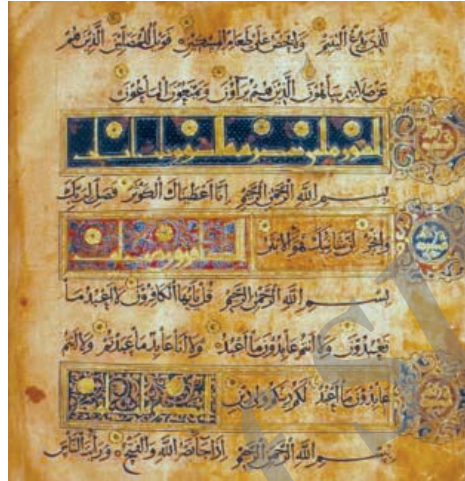 الَّذِي يَدُعُّ الْيَتِيمَ وَلَا يَحُضُّ عَلَى طَعَامِ الْمِسْكِينِ فَوَيْلٌ لِلْمُصَلِّينَ الَّذِينَ هُمْ
عَنْ صَلَاتِهِمْ سَاهُونَ الَّذِينَ هُمْ يُرَاؤُنَ وَيَمْنَعُونَ الْمَاعُونَ
بِسْمِ اللَّهِ الرَّحْمَنِ الرَّحِيمِ إِنَّا أَعْطَيْنَاكَ الْكَوْثَرَ فَصَلِّ لِرَبِّكَ
وَانْحَرْ إِنَّ شَانِئَكَ هُوَ الْأَبْتَرُ
بِسْمِ اللَّهِ الرَّحْمَنِ الرَّحِيمِ قُلْ يَاأَيُّهَا الْكَافِرُونَ لَا أَعْبُدُ مَا
تَعْبُدُونَ وَلَا أَنْتُمْ عَابِدُونَ مَا أَعْبُدُ وَلَا أَنَا عَابِدٌ مَا عَبَدْتُمْ وَلَا أَنْتُمْ
عَابِدُونَ مَا أَعْبُدُ لَكُمْ دِينُكُمْ وَلِيَ دِينِ
بِسْمِ اللَّهِ الرَّحْمَنِ الرَّحِيمِ إِذَا جَاءَ نَصْرُ اللَّهِ وَالْفَتْحُ وَرَأَيْتَ النَّاسَ